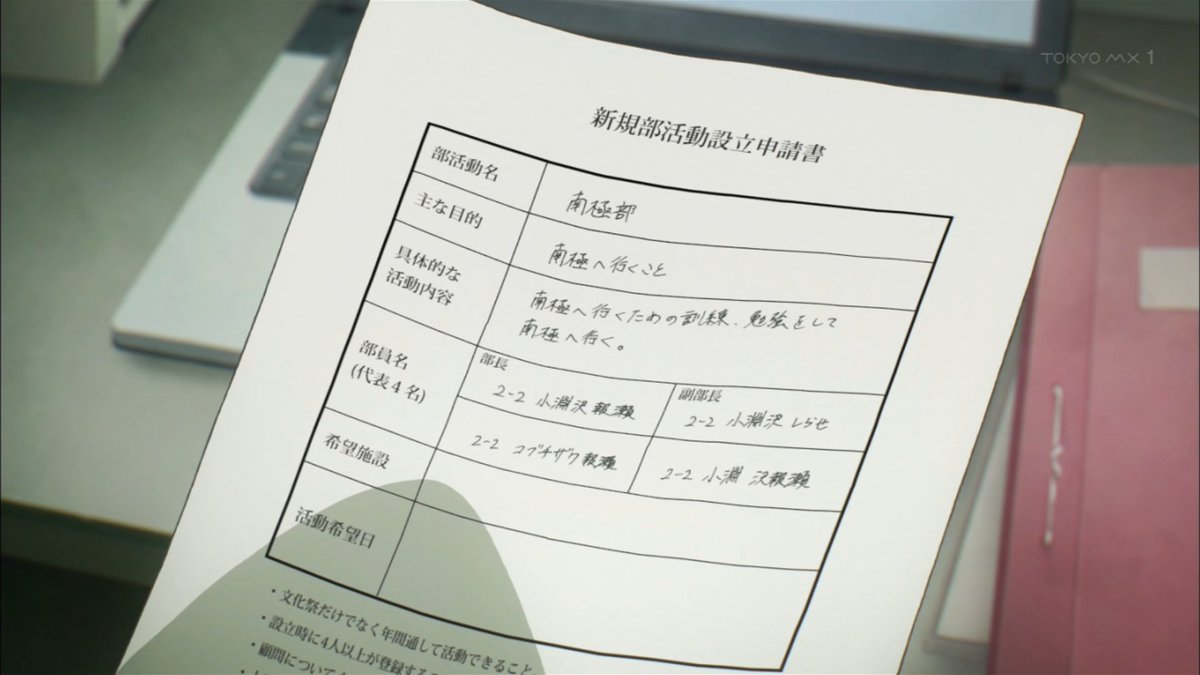 TOKYO MX 1
新規部活動設立申請書
部活動名
南極部
主な目的
南極へ行くこと
具体的な
活動内容
南極へ行くための訓練、勉強をして
南極へ行く。
部員名
(代表4名)
部長
2-2 小淵沢報瀬
副部長
2-2 小淵沢しらせ
2-2 コブチザワ報瀬
2-2 小淵 沢報瀬
希望施設
活動希望日
・文化祭だけでなく年間通して活動できること
・設立時に4人以上が登録する
・顧問について